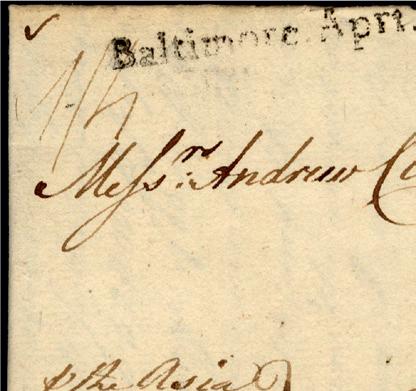 Baltimore. Apri.
1/4
Messrs: Andrew
p the Asia